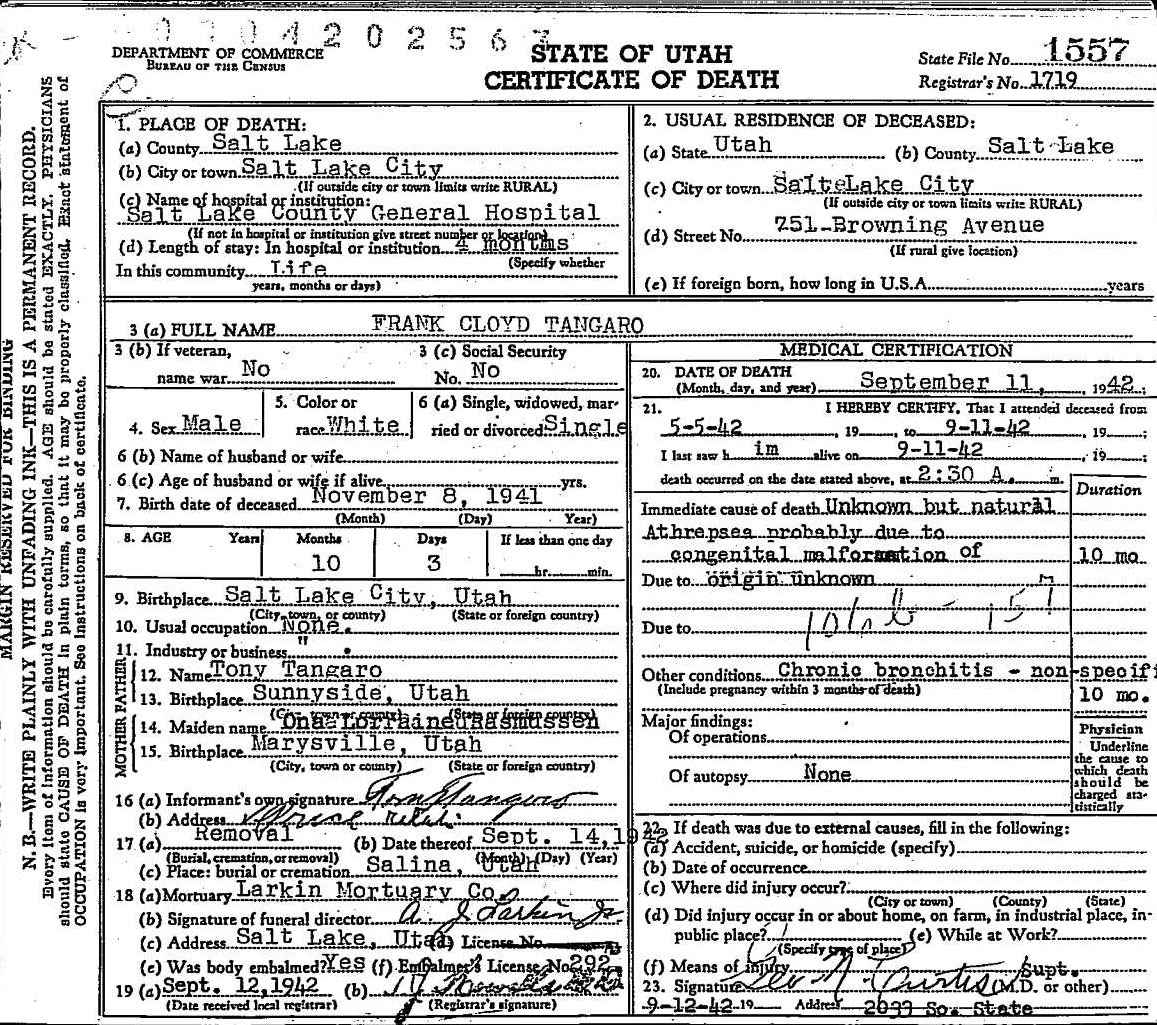 0 7 0 4 2 0 2 5 6
DEPARTMENT OF COMMERCE
BUREAU OF THE CENSUS
STATE OF UTAH
CERTIFICATE OF DEATH
State File No. 1557
Registrar's No. 1719
MARGIN RESERVED FOR BINDING
N. B.—WRITE PLAINLY WITH UNFADING INK—THIS IS A PERMANENT RECORD.
Every item of information should be carefully supplied. AGE should be stated EXACTLY. PHYSICIANS
should state CAUSE OF DEATH in plain terms, so that it may be properly classified. Exact statement of
OCCUPATION is very important. See instructions on back of certificate.
1. PLACE OF DEATH:
(a) County Salt Lake
(b) City or town Salt Lake City
(If outside city or town limits write RURAL)
(c) Name of hospital or institution:
Salt Lake County General Hospital
(If not in hospital or institution give street number or location)
(d) Length of stay: In hospital or institution 4 months
(Specify whether
In this community Life
years, months or days)
2. USUAL RESIDENCE OF DECEASED:
(a) State Utah (b) County Salt Lake
(c) City or town Salt Lake City
(If outside city or town limits write RURAL)
(d) Street No. 751 Browning Avenue
(If rural give location)
(e) If foreign born, how long in U.S.A. years
3 (a) FULL NAME FRANK CLOYD TANGARO
3 (b) If veteran, name war No
3 (c) Social Security No. No
4. Sex Male
5. Color or race White
6 (a) Single, widowed, married or divorced Single
6 (b) Name of husband or wife
6 (c) Age of husband or wife if alive yrs.
7. Birth date of deceased November 8, 1941
(Month) (Day) Year)
8. AGE Years Months Days If less than one day
10 3 hr. min.
9. Birthplace Salt Lake City, Utah
(City, town, or county) (State or foreign country)
10. Usual occupation None.
11. Industry or business "
FATHER
12. Name Tony Tangaro
13. Birthplace Sunnyside, Utah
(City, town or county) (State or foreign country)
MOTHER
14. Maiden name Ona Lorraine Rasmussen
15. Birthplace Marysville, Utah
(City, town or county) (State or foreign country)
16 (a) Informant's own signature Tony Tangaro
(b) Address
17 (a) Removal (b) Date thereof Sept. 14, 1942
(Burial, cremation, or removal) (Month) (Day) (Year)
(c) Place: burial or cremation Salina, Utah
18 (a) Mortuary Larkin Mortuary Co.
(b) Signature of funeral director A. J. Larkin Jr.
(c) Address Salt Lake, Utah (d) License No.
(e) Was body embalmed? Yes (f) Embalmer's License No. 292
19 (a) Sept. 12, 1942 (b)
(Date received local registrar) (Registrar's signature)
MEDICAL CERTIFICATION
20. DATE OF DEATH
(Month, day, and year) September 11, 1942;
21. I HEREBY CERTIFY, That I attended deceased from
5-5-42, 19 , to 9-11-42, 19 ;
I last saw h im alive on 9-11-42, 19 ;
death occurred on the date stated above, at 2:30 A. m.
Duration
Immediate cause of death Unknown but natural
Athrepsea probably due to
congenital malformation of 10 mo
Due to origin unknown
Due to
Other conditions Chronic bronchitis - non-specifi
(Include pregnancy within 3 months of death) 10 mo.
Major findings:
Of operations
Of autopsy None
Physician
Underline
the cause to
which death
should be
charged sta-
tistically
22. If death was due to external causes, fill in the following:
(a) Accident, suicide, or homicide (specify)
(b) Date of occurrence
(c) Where did injury occur?
(City or town) (County) (State)
(d) Did injury occur in or about home, on farm, in industrial place, in-
public place? (e) While at Work?
(Specify type of place)
(f) Means of injury Supt.
23. Signature Geo N. Curtis (M.D. or other)
9-12-42 19 Address 2033 So. State